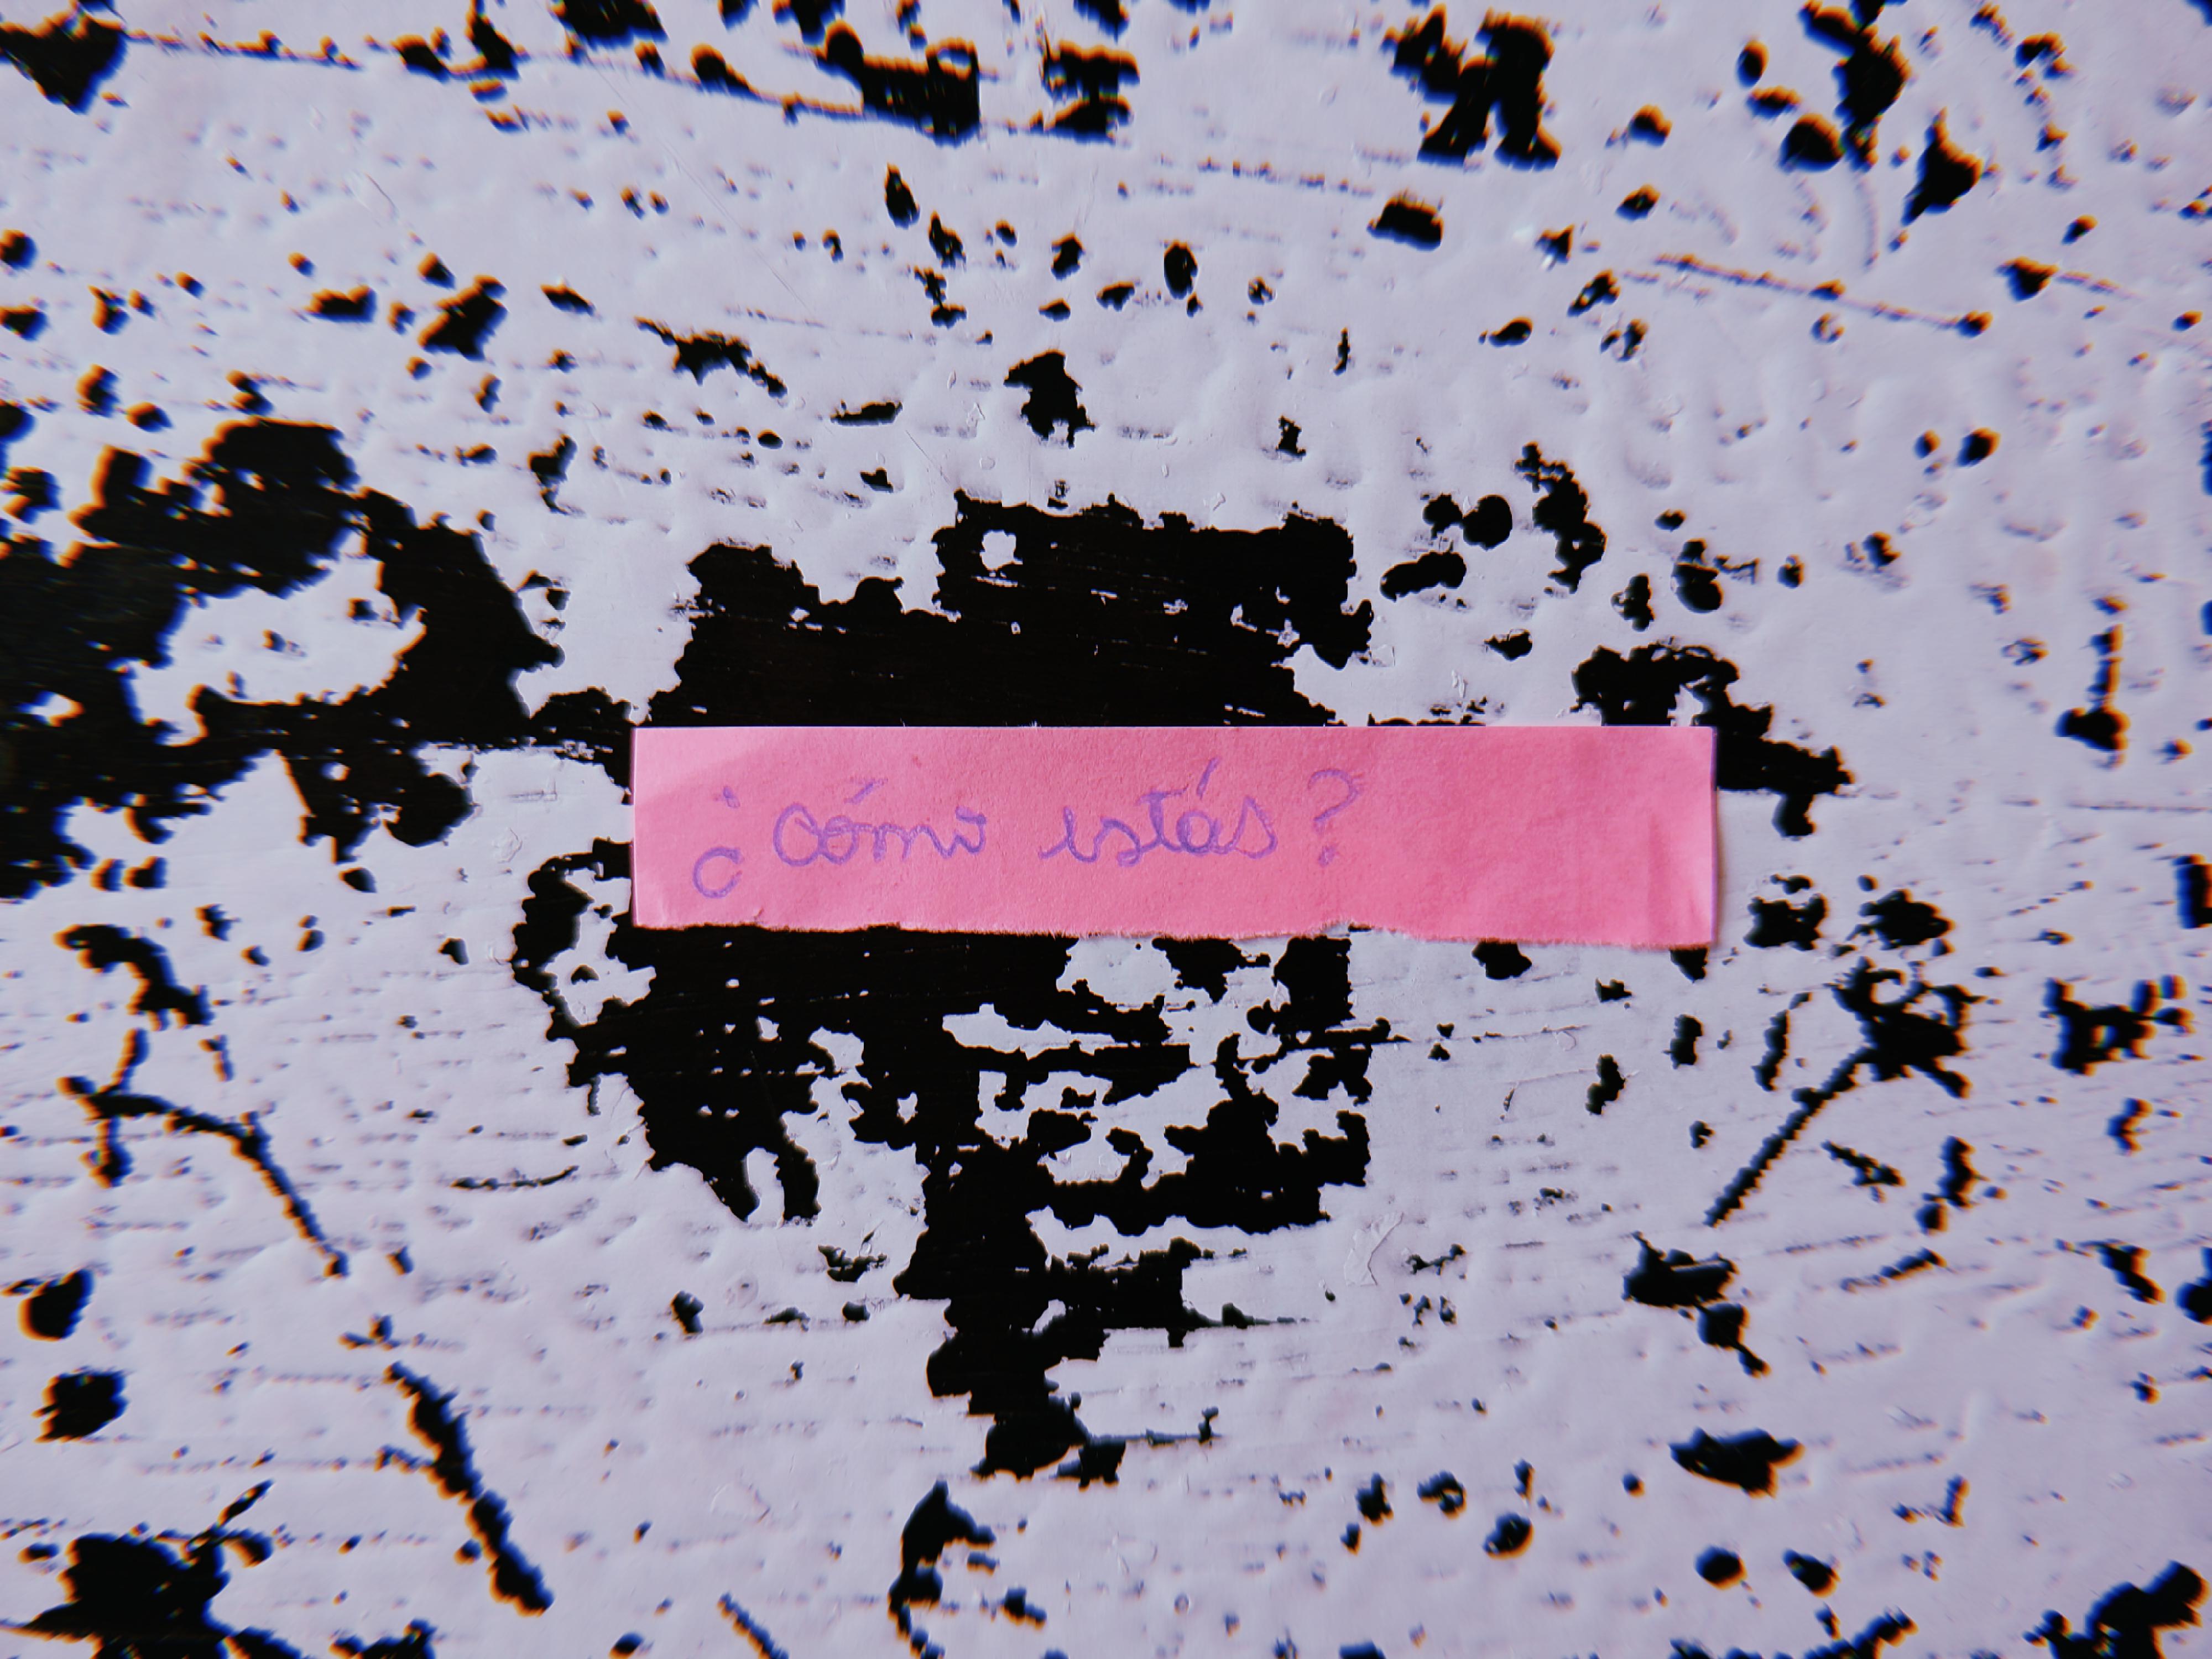 ¿cómo estás?